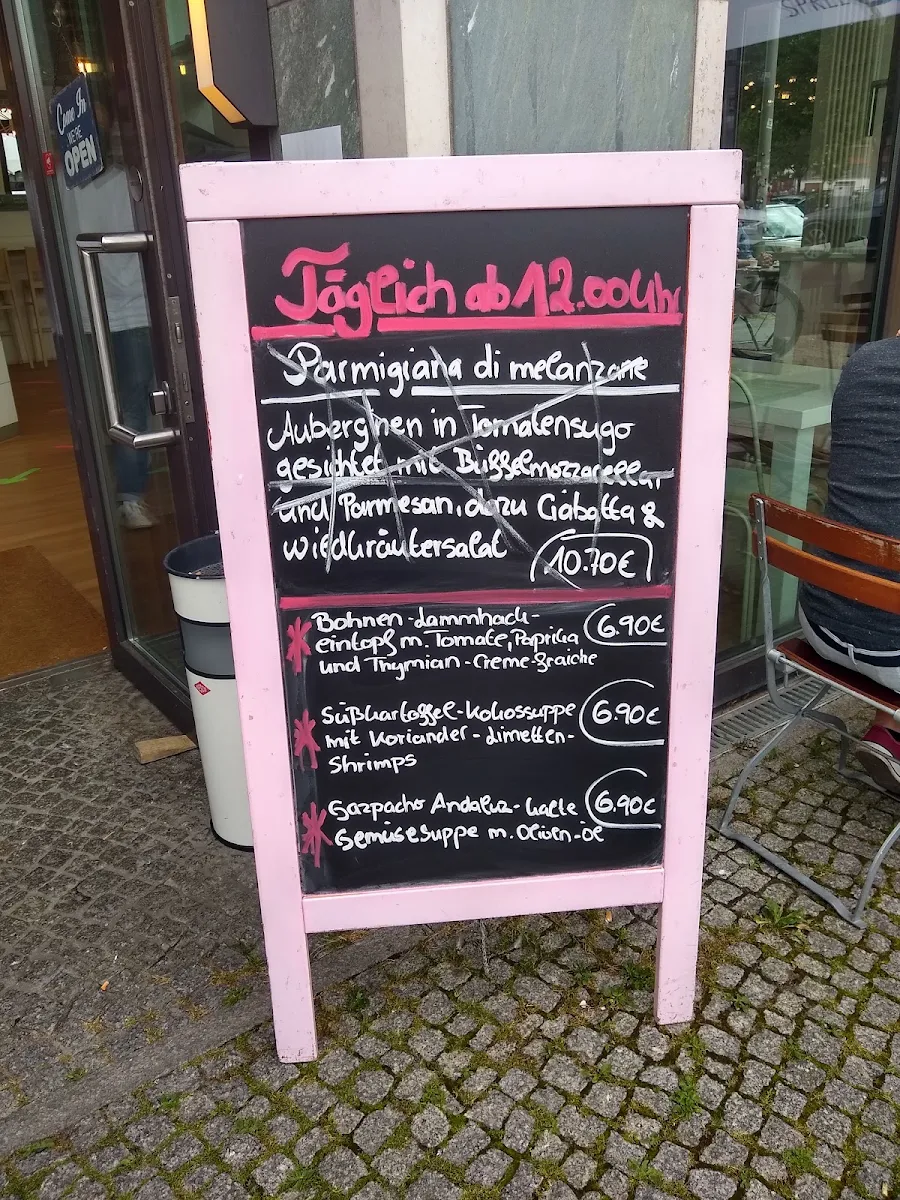 Come In
WE'RE
OPEN
Täglich ab 12.00 Uhr
Parmigiana di melanzane
Auberginen in Tomatensugo
geschichtet mit Büffelmozzarella
und Parmesan, dazu Ciabatta &
Wildkräutersalat 10.70€
Bohnen-Lammhack- 6.90€
eintopf m. Tomate, Paprika
und Thymian-Creme-fraiche
Süßkartoffel-Kokossuppe 6.90€
mit Koriander-Limetten-
Shrimps
Gazpacho Andaluz-kalte 6.90€
Gemüsesuppe m. Oliven-öl